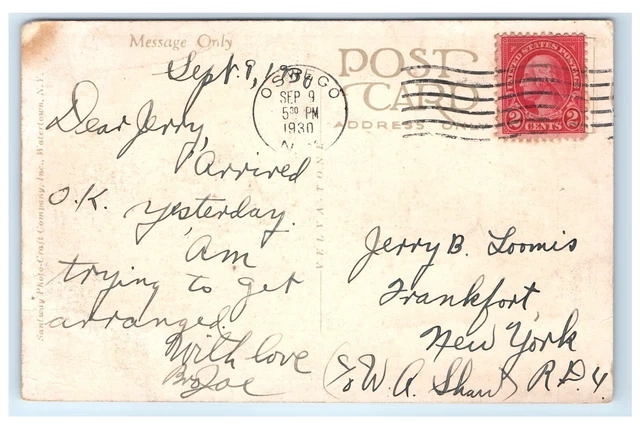 Message Only
Sept. 9, 1930
POST
CARD
ADDRESS ONLY
OSWEGO
SEP 9
5 30 PM
1930
N.
UNITED STATES POSTAGE
2 CENTS 2
Dear Jerry,
Arrived
O.K. yesterday.
Am
trying to get
arranged.
With love
Bro Joe
Jerry B. Loomis
Frankfort
New York
(c/o W. A. Shaw) R.D. 4
VELVATONE
Santway Photo-Craft Company, Inc., Watertown, N.Y.